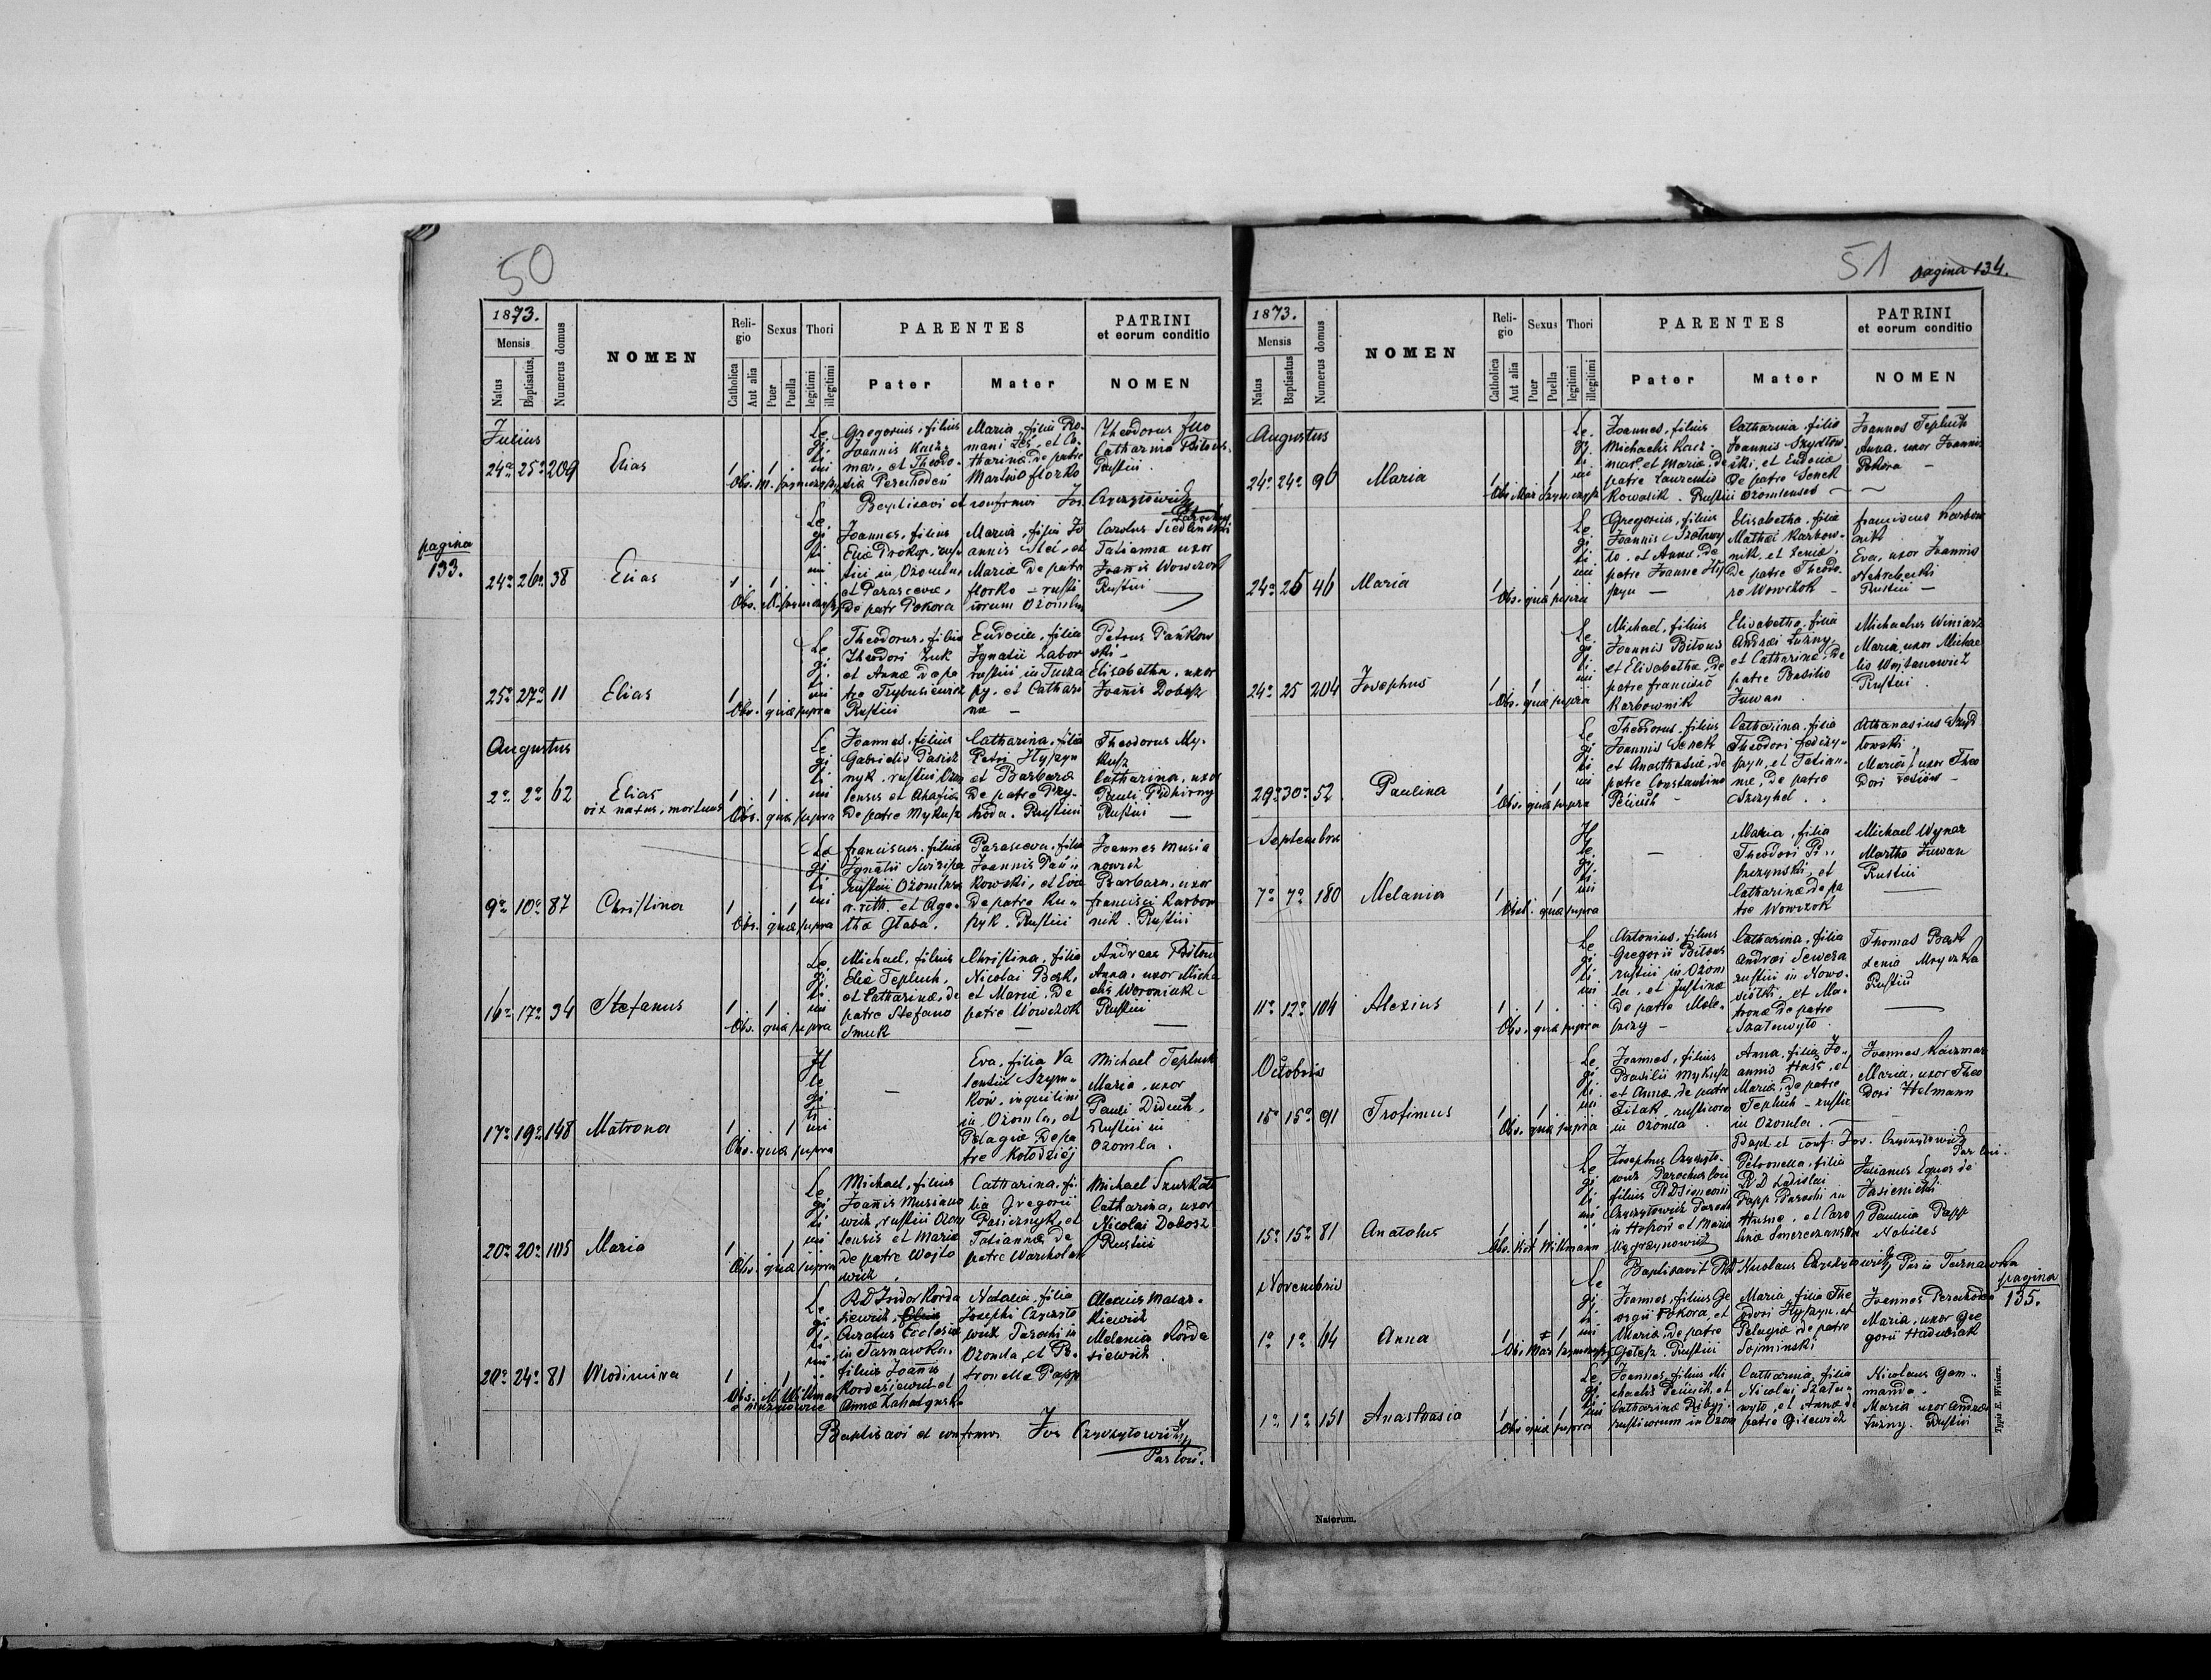 50
pagina
133.
1873.
Mensis
Natus
Baptisatus
Numerus domus
NOMEN
Religio
Catholica
Aut alia
Sexus
Puer
Puella
Thori
legitimi
illegitimi
PARENTES
Pater
Mater
PATRINI
et eorum conditio
NOMEN
Julius
24a 25a 209
Elias
Legitimi
Gregorius, filius
Joannis Kacz-
mar, et Theodo-
Maria, filia Ro-
mani Leś, et Ca-
tharinæ de patre
Theodorus
Catharina Bitous
Rustici.
Baptisavi et confirmavi Jos. Czyrzytowicz
24a 26a 38
Elias
Legitimi
Joannes, filius
Eliæ Prokop, rus-
tici in Ozomla,
et Parasceva,
de patre Pokora
Maria, filia Jo
annis Steć, et
Mariæ de patre
florko - rusti
corum Ozomla
Carolus Siedlinski
Tatianna uxor
Joannis Wowczok
Rustici
25a 27a 11
Elias
Obs. quæ supra
Legitimi
Theodorus, filius
Theodori Zuk
et Annæ de pa
tre Trybusiewicz
Rustici
Eudocia, filia
Ignatii Labor
rustici in Tucza
py, et Cathari
næ -
Petrus Pańkow
ski -
Elisabetha, uxor
Joannis Dobosz
Augustus
2a 2a 62
Elias
vix natus, mortuus
Obs. quæ supra
Legitimi
Joannes, filius
Gabrielis Pasicz
nyk, rustici Ozom
lensis et Ahafiæ
de patre Mykusz
Catharina, filia
Petri Hyszyn
et Barbaræ
de patre Przy-
hoda. Rustici
Theodorus My-
kusz
Catharina, uxor
Pauli Pidhirny
Rustici
9a 10a 87
Christina
Obs. quæ supra
Legitimi
franciscus, filius
Ignatii Swirisza
rustici Ozomlens
r. rith. et Aga-
tha Głaba.
Parasceva, filia
Joannis Pań-
kowski, et Eva
de patre Ku-
pyk. Rustici
Joannes Musia
nowicz
Barbara, uxor
francisci Karbow
nik. Rustici
16a 17a 94
Stefanus
Obs. quæ supra
Legitimi
Michael, filius
Eliæ Tepluch,
et Catharinæ, de
patre Stefano
Smuk
Christina, filia
Nicolai Bask,
et Mariæ, de
patre Wowczok
Andreas Bitous
Anna, uxor Micha
elis Woroniak
Rustici
17a 19a 148
Matrona
Obs. quæ supra
Illegitimi
Eva, filia Va
lentii Szym-
kow, inquilini
in Ozomla, et
Pelagiæ de pa
tre Kołodziéj
Michael Tepluch
Maria, uxor
Pauli Diduch,
Rustici in
Ozomla.
20a 20a 105
Maria
Obs. quæ supra
Legitimi
Michael, filius
Joannis Musiano
wicz, rustici Ozom
lensis et Mariæ
de patre Wojto
wicz.
Catharina, fi-
lia Gregorii
Pasicznyk, et
Tatiannæ de
patre Warcholak
Michael Szurkało
Catharina, uxor
Nicolai Dobosz
Rustici
20a 24a 81
Wlodimira
Legitimi
RD Isidor Korda
siewicz,
Curatus Ecclesiæ
in Tarnawka,
filius Joannis
Kordasiewicz et
Annæ
Natalia, filia
Josephi Czyrzyto
wicz Parochi in
Ozomla, et Pe-
tronellæ Papp
Alexius Makar-
kiewicz
Melania Korda
siewicz.
Baptisavi et confirmavi Jos Czyrzytowicz
Par loci.
51
pagina 134.
1873.
Mensis
Natus
Baptisatus
Numerus domus
NOMEN
Religio
Catholica
Aut alia
Sexus
Puer
Puella
Thori
legitimi
illegitimi
PARENTES
Pater
Mater
PATRINI
et eorum conditio
NOMEN
Augustus
24a 24a 96
Maria
Legitimi
Joannes, filius
Michaelis Kacz-
mar, et Mariæ, de
patre Laurentio
Kowasik. Rustici Ozomlenses
Catharina, filia
Joannis Szydłow
ski, et Eudociæ
de patre Senek
Joannes Tepluch
Anna, uxor Joannis
Pokora -
24a 25 46
Maria
Obs. quæ supra
Legitimi
Gregorius, filius
Joannis Szałowy
ło, et Annæ, de
patre Joanne Hy
szyn -
Elisabetha, filia
Mathæi Karbow-
nik, et Xeniæ,
de patre Theodo-
ro Wowczok -
franciscus Karbow
nik
Eva, uxor Joannis
Nehrebecki
Rustici -
24a 25 204
Josephus
Obs. quæ supra
Legitimi
Michael, filius
Joannis Bitous
et Elisabethæ, de
patre francisco
Karbownik
Elisabetha, filia
Andreæ Łuzny,
et Catharinæ, de
patre Basilio
Juwan
Michaelus Winiarz
Maria, uxor Michae
lis Wojtanowicz
Rustici.
29a 30a 52
Paulina
Obs. quæ supra
Legitimi
Theodorus, filius
Joannis Senek
et Anasthasiæ, de
patre Constantino
Catharina, filia
Theodori fedczy-
szyn, et Tatian-
næ, de patre
Szczyhel.
Athanasius Szyd
łowski.
Maria, uxor Theo
dori
Septembris
7a 7a 180
Melania
Obs. quæ supra
Illegitimi
Maria, filia
Theodori Pi-
szczynski, et
Catharinæ de pa
tre Wowczok
Michael Wynar
Martha Juwan
Rustici
11a 12a 104
Alexius
Obs. quæ supra
Legitimi
Antonius, filius
Gregorii Bitous
rustici in Ozom
la, et Justinæ
de patre Male-
szczy -
Catharina, filia
Andreæ Sewera
rustici in Nowo-
siółki, et Ma-
tronæ de patre
Szałowyło.
Thomas Bask
Xenia Mryczka
Rustici
Octobris
15a 15a 91
Trofimus
Obs. quæ supra
Legitimi
Joannes, filius
Basilii Mykusz
et Annæ, de patre
Fitak, rusticorum
in Ozomla
Anna, filia Jo-
annis Hass, et
Mariæ, de patre
Tepluch - rustic
in Ozomla.
Joannes Kaczmar
Maria, uxor Theo
dori Helmann
Bapt. et conf: Jos. Czyrzytowicz
Par loci.
15a 15a 81
Anatolus
Legitimi
Josephus Czyrzyto-
wicz Parochus loci
filius RD Simeonis
Czyrzytowicz Parochi
in Hoszow et Mariæ
Węgrzynowicz
Petronella, filia
RD Ladislai
Papp Parochi in
Husne, et Caro
linæ Smereczanska
Julianus Eques de
Jasienicki
Paulina Papp
Nobiles
Baptisavit RD Nicolaus Czyrzytowicz Par in Tarnawka
pagina
135.
Novembris
1a 1a 64
Anna
Legitimi
Joannes, filius Ge
orgii Pokora, et
Mariæ, de patre
Gelesz. Rustici
Maria, filia The
odori Hyszyn, et
Pelagiæ de patre
Sojminski
Joannes Perechoden
Maria, uxor Gre
gorii Haduwiak
1a 1a 151
Anasthasia
Obs quæ supra
Legitimi
Joannes, filius Mi
chaelis et
Catharinæ Ribyj-
rusticorum in Ozom
Catharina, filia
Nicolai Szału-
wyło, et Annæ de
patre Gilewicz
Nicolaus Gom-
manda.
Maria uxor Andreæ
Łuzny. Rustici
Typis E. Winiarz.
Natorum.